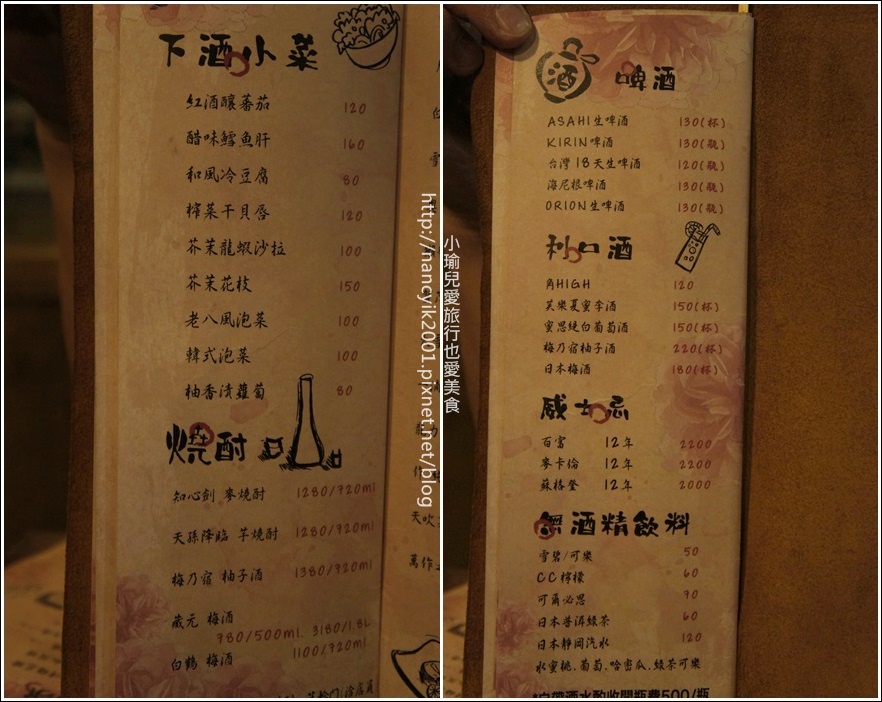 下酒小菜
紅酒釀蕃茄 120
醋味鱈魚肝 160
和風冷豆腐 80
榨菜干貝唇 120
芥茉龍蝦沙拉 100
芥茉花枝 150
老八風泡菜 100
韓式泡菜 100
柚香漬蘿蔔 80
燒酎
知心劍 麥燒酎 1280/720ml
天孫降臨 芋燒酎 1280/720ml
梅乃宿 柚子酒 1380/720ml
蔵元 梅酒
980/500ml. 3180/1.8L
白鶴 梅酒 1100/720ml
http://nancyik2001.pixnet.net/blog
小瑜兒愛旅行也愛美食
酒
啤酒
ASAHI生啤酒 130(杯)
KIRIN啤酒 130(瓶)
台灣18天生啤酒 120(瓶)
海尼根啤酒 130(瓶)
ORION生啤酒 130(瓶)
利口酒
角HIGH 120
芙樂夏蜜李酒 150(杯)
蜜思絕白葡萄酒 150(杯)
梅乃宿柚子酒 220(杯)
日本梅酒 180(杯)
威士忌
百富 12年 2200
麥卡倫 12年 2200
蘇格登 12年 2000
無酒精飲料
雪碧/可樂 50
CC檸檬 60
可爾必思 70
日本普洱綠茶 60
日本靜岡汽水 120
水蜜桃.葡萄.哈密瓜.綠茶可樂
*自帶酒水酌收開瓶費500/瓶